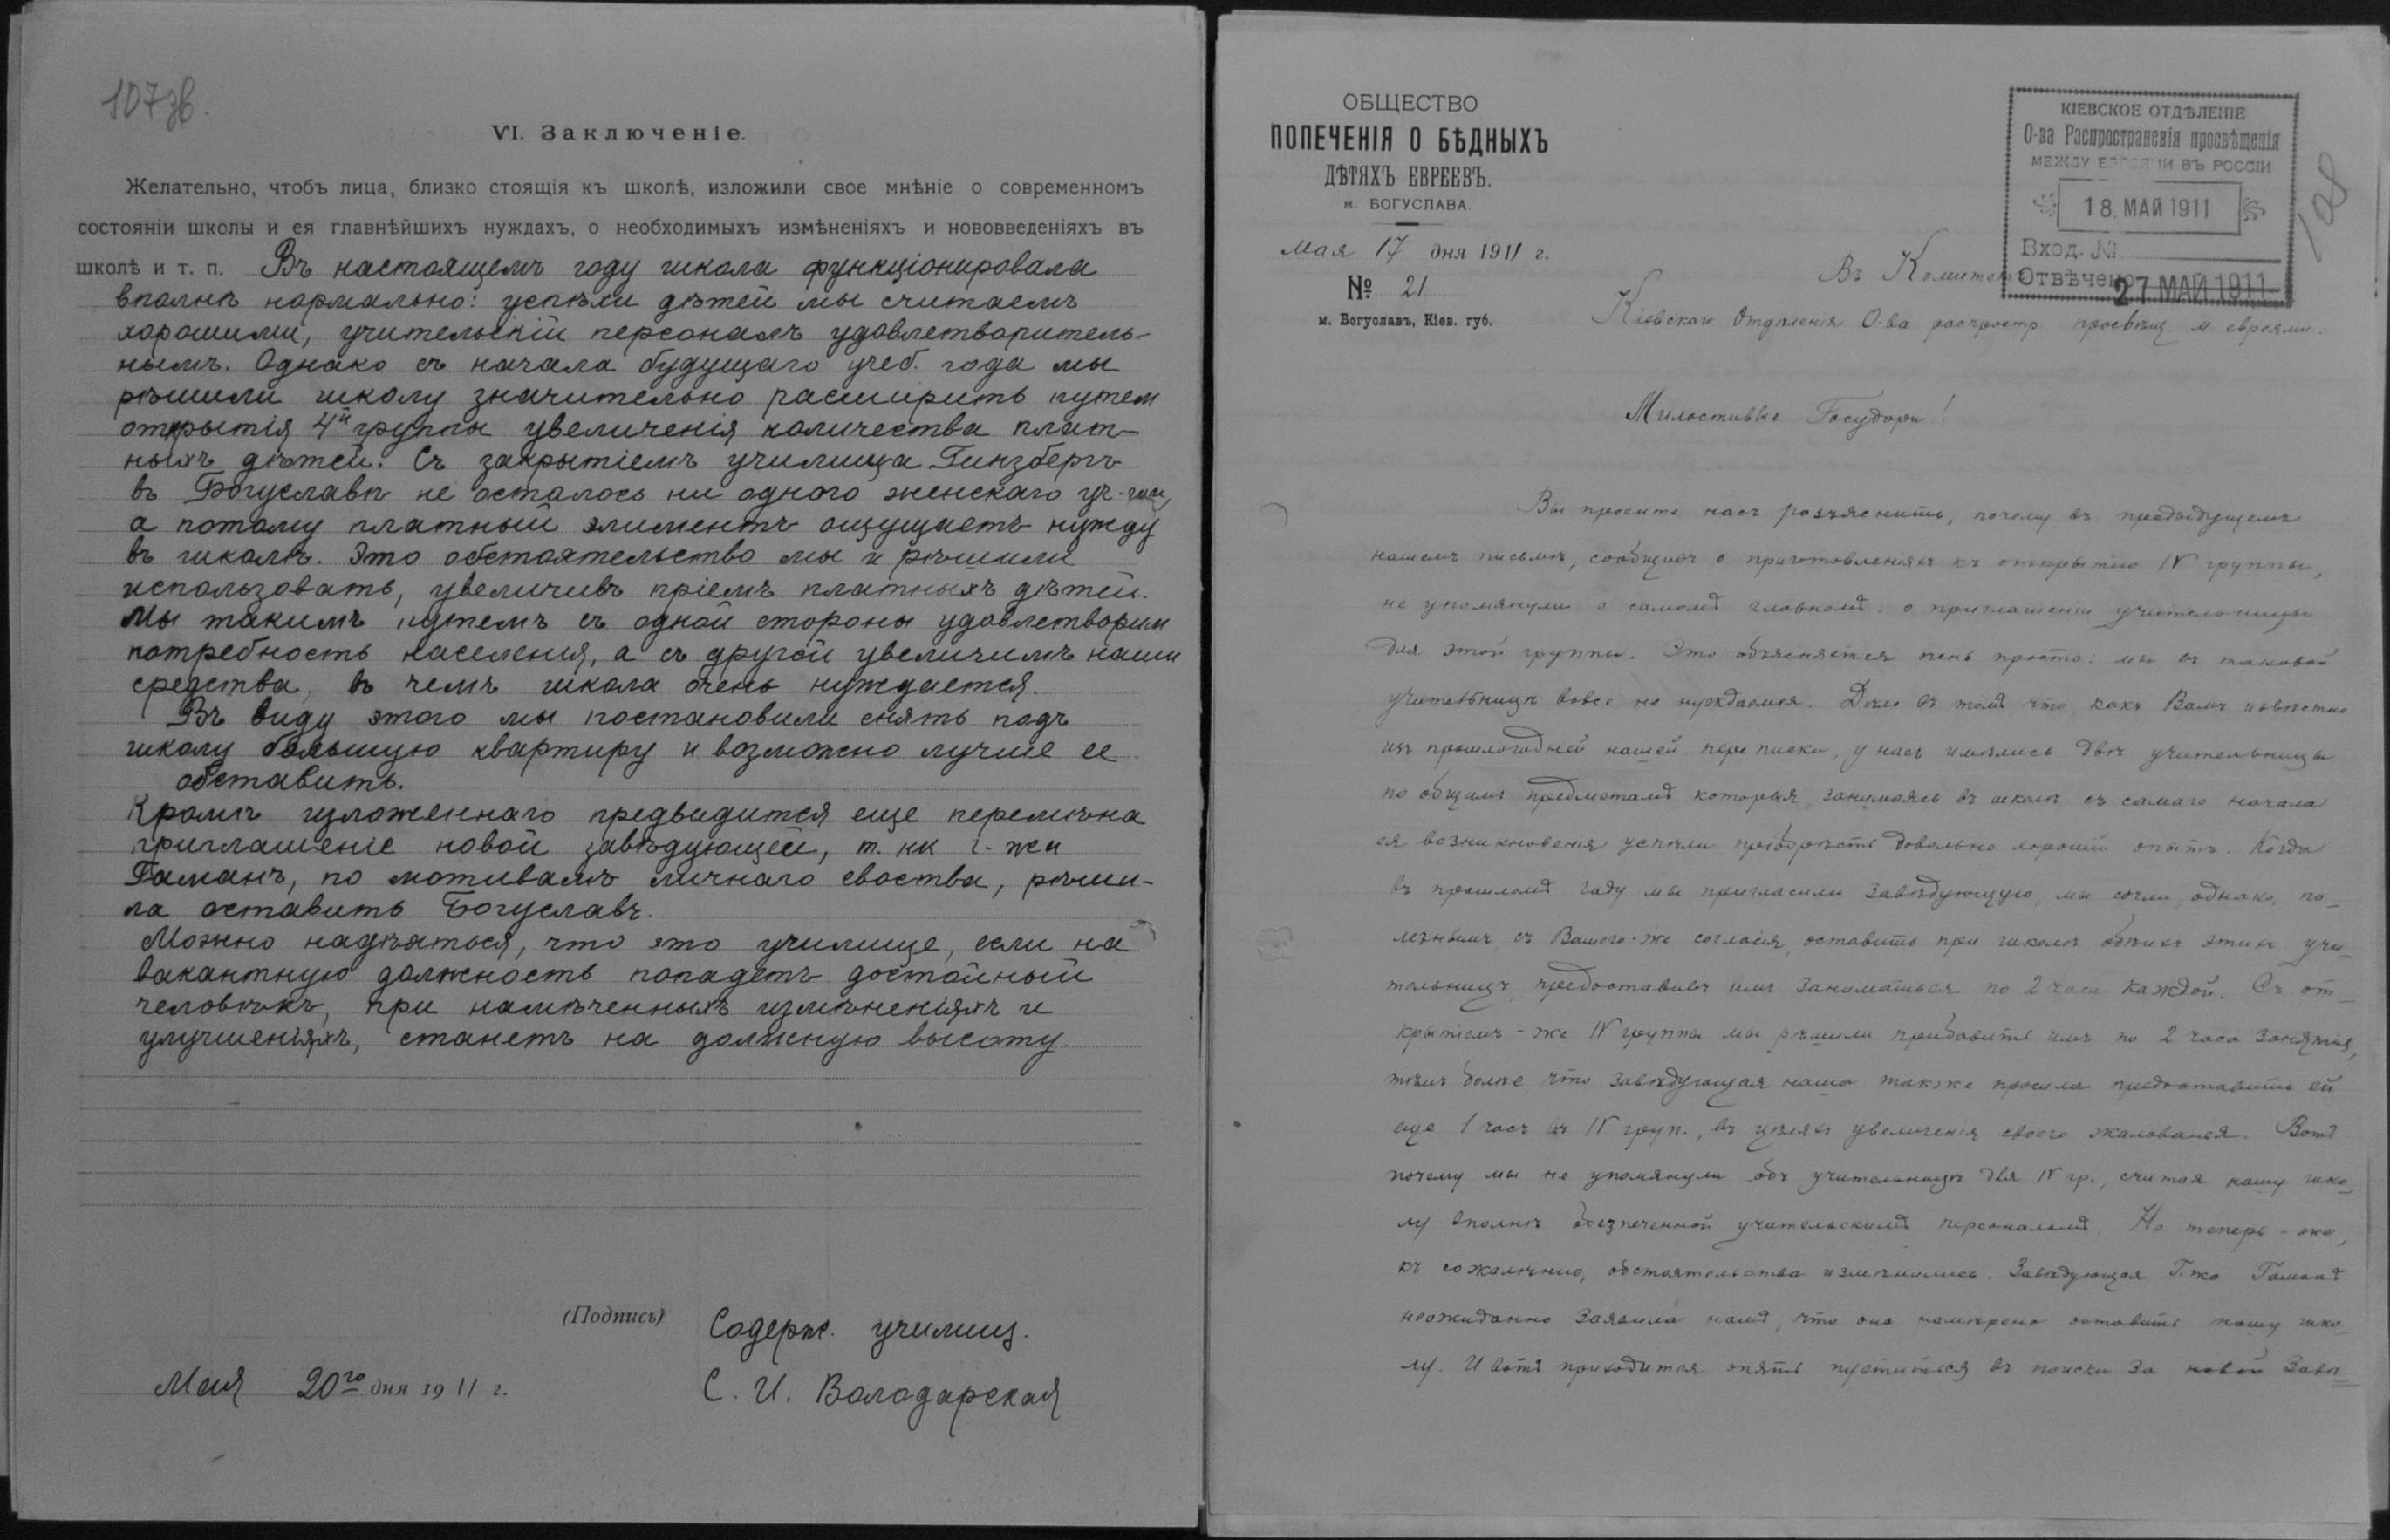 107 зв.
VI. Заключеніе.
Желательно, чтобъ лица, близко стоящія къ школѣ, изложили свое мнѣніе о современномъ
состояніи школы и ея главнѣйшихъ нуждахъ, о необходимыхъ измѣненіяхъ и нововведеніяхъ въ
школѣ и т. п. Въ настоящемъ году школа функціонировала
вполнѣ нормально: успѣхи дѣтей мы считаемъ
хорошими, учительскій персоналъ удовлетворитель-
нымъ. Однако съ начала будущаго учеб. года мы
рѣшили школу значительно расширить путем
открытія 4й группы увеличенія количества плат-
ныхъ дѣтей. Съ закрытіемъ училища Гинзбергъ
въ Богуславѣ не осталось ни одного женскаго
а потому платный элиментъ ощущаетъ нужду
въ школѣ. Это обстоятельство мы и рѣшили
использовать, увеличивъ пріемъ платныхъ дѣтей.
Мы такимъ путемъ съ одной стороны удовлетворим
потребность населения, а съ другой увеличимъ наши
средства, въ чемъ школа очень нуждается.
Въ виду этого мы постановили снять подъ
школу большую квартиру и возможно лучше ее
обставить.
Кромѣ изложеннаго предвидится еще перемѣна
приглашеніе новой завѣдующей, т. кк г-жа
Гаманъ, по мотивамъ личнаго своства, рѣши-
ла оставить Богуславъ.
Можно надѣяться, что это училище, если на
вакантную должность попадетъ достойный
человѣкъ, при намѣченныхъ измѣненіяхъ и
улучшеніяхъ, станетъ на должную высоту.
(Подпись) Содерж. училищ.
Мая 20го дня 1911 г. С. И. Володарская
ОБЩЕСТВО
ПОПЕЧЕНІЯ О БѢДНЫХЪ
ДѢТЯХЪ ЕВРЕЕВЪ.
м. БОГУСЛАВА.
Мая 17 дня 1911 г.
№ 21
м. Богуславъ, Кіев. губ.
КІЕВСКОЕ ОТДѢЛЕНІЕ
О-ва Распространенія просвѣщенія
МЕЖДУ ЕВРЕЯМИ ВЪ РОССІИ
18. МАЙ 1911
Вход. №
Отвѣчено 27 МАЙ 1911
108
Въ Комитетъ
Кіевскаго Отдѣленія О-ва распростр. просвѣщ м. евреями.
Милостивые Государи!
Вы просите насъ разъяснить, почему въ предыдущемъ
нашемъ письмѣ, сообщивъ о приготовленіяхъ къ открытію IV группы,
не упомянули о самомъ главномъ: о приглашеніи учительницы
для этой группы. Это объясняется очень просто: мы въ таковой
учительницѣ вовсе не нуждаемся. Дѣло въ томъ что, какъ Вамъ извѣстно
изъ прошлогодней нашей переписки, у насъ имѣлись двѣ учительницы
по общимъ предметамъ которыя, занимаясь въ школѣ съ самаго начала
ея возникновенія успѣли пріобрѣсть довольно хорошій опытъ. Когда
въ прошломъ году мы пригласили завѣдующую, мы сочли, однако, по-
лезнымъ, съ Вашего-же согласія, оставить при школѣ обѣихъ этихъ учи-
тельницъ, предоставивъ имъ заниматься по 2 часа каждой. Съ от-
крытіемъ-же IV группы мы рѣшили прибавить имъ по 2 часа занятія,
тѣмъ болѣе, что завѣдующая наша также просила предоставить ей
еще 1 часъ въ IV груп., въ цѣляхъ увеличенія своего жалованья. Вотъ
почему мы не упомянули объ учительницѣ для IV гр., считая нашу шко-
лу вполнѣ обезпеченной учительскимъ персоналомъ. Но теперь-же,
къ сожалѣнію, обстоятельства измѣнились. Завѣдующая Г-жа Гаманъ
неожиданно заявила намъ, что она намѣрена оставить нашу шко-
лу. И вотъ приходится опять пуститься въ поиски за новой завѣ-